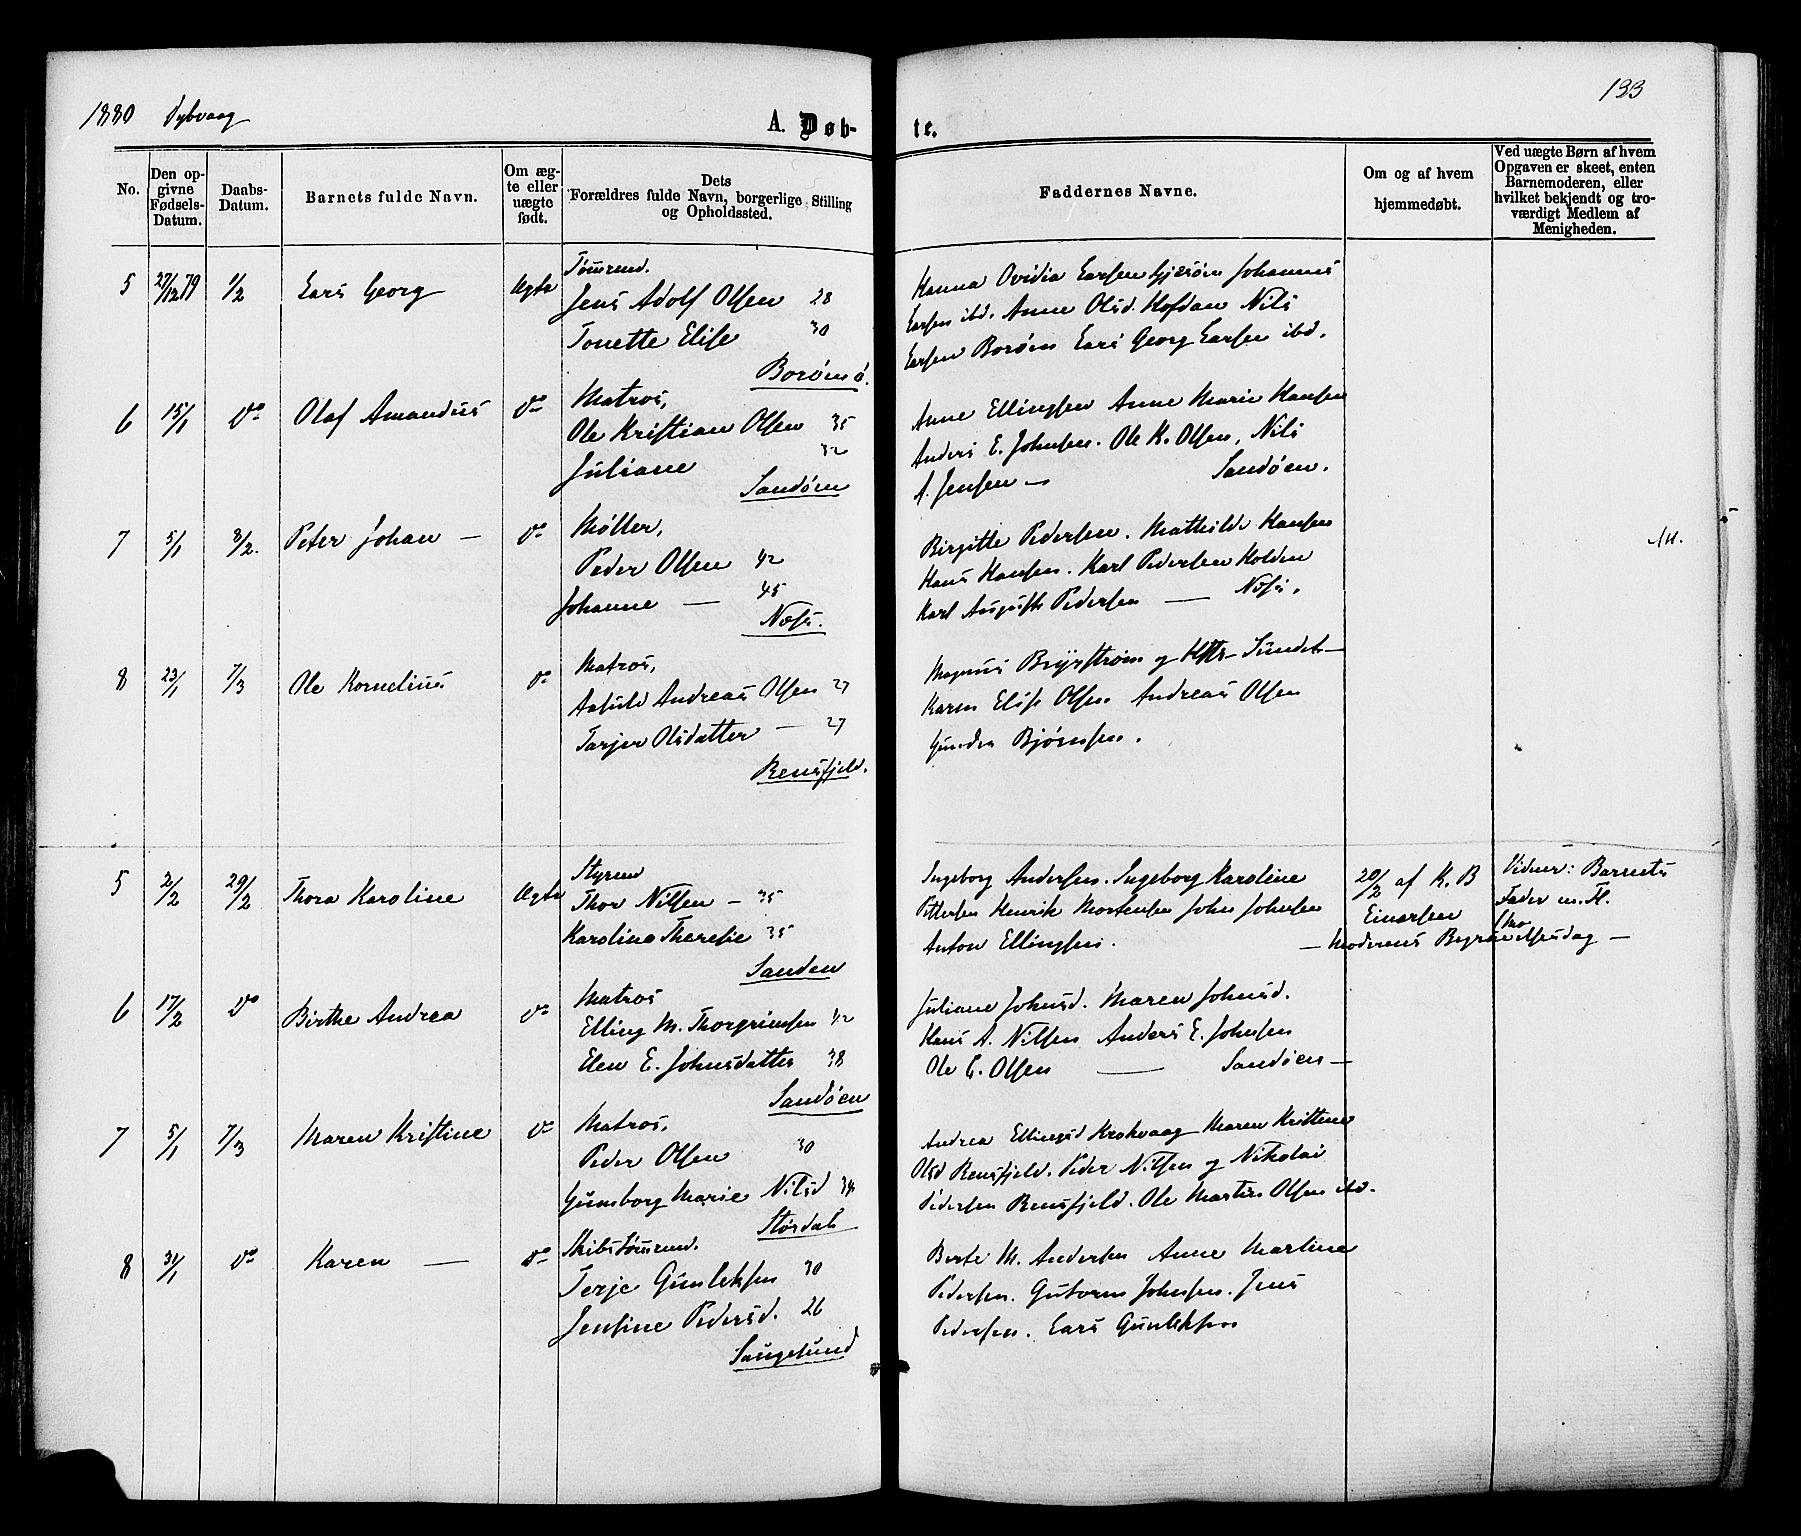 1880 Dybvaag
133
A. Døb-
te.
No.
Den op-
givne
Fødsels-
Datum.
Daabs-
Datum.
Barnets fulde Navn.
Om æg-
te eller
uægte
født.
Dets
Forældres fulde Navn, borgerlige Stilling
og Opholdssted.
Faddernes Navne.
Om og af hvem
hjemmedøbt.
Ved uægte Børn af hvem
Opgaven er skeet, enten
Barnemoderen, eller
hvilket bekjendt og tro-
værdigt Medlem af
Menigheden.
5 27/12 79 1/2 Lars Georg Ægte
Tømrmd.
Jens Adolf Olsen 28
Tonette Elise 30
Borømø.
Hanna Ovidia Larsen Gjesøm Johannes
Larsen ibd. Anne Olsd. Hofdan Nils
Larsen Borøm Lars Georg Larsen ibd.
6 15/1 do Olaf Amandus do
Matros,
Ole Kristian Olsen 35
Juliane 32
Sandøen
Anne Ellingsen Anne Marie Hansen
Anders E. Johnsen. Ole K. Olsen, Nils
A. Jensen — Sandøen.
7 5/1 8/2. Peter Johan — do
Møller,
Peder Olsen 42
Johanne — 45
Næss.
Birgitte Pedersen. Mathilde Hansen
Hans Hansen. Karl Pedersen Holden
Karl August Pedersen — Næss.
8 23/1 7/3 Ole Kornelius do
Matros,
Aasuld Andreas Olsen 27
Tarjer Olsdatter — 27
Rensfjeld.
Magnus Bryrstrøm og Hstr — Sundet —
Karen Elise Olsen Andreas Olsen
Gunder Bjørnsen.
5 2/2 29/2 Thora Karoline Ægte
Styrmd
Thor Nilsen — 35
Karoline Theresie 35
Sanden
Ingeborg Andersen. Ingeborg Karoline
Pettersen Henrik Mortensen John Johnsen
Anton Ellingsen.
20/2 af K. B
Einarsen
Vidner: Barnets
Fader m. Fl.
— Moderens Begrav
6 17/2 do Birthe Andrea do
Matros
Elling M. Thorgrimsen 42
Elen E. Johnsdatter 38
Sandøen
Juliane Johnsd. Maren Johnsd.
Hans A. Nilsen Anders E. Johnsen
Ole E. Olsen — Sandøen —
7 5/1 7/3 Maren Kristine do
Matros,
Peder Olsen 30
Gunborg Marie Nilsd 34
Størdal
Andrea Ellingsd Krokvaag Maren Kristine
Olsd Rensfjeld. Peder Nilsen og Nikolai
Pedersen Rensfjeld. Ole Martin Olsen ibd.
8 31/1 do Karen — do
Skibstømrmd.
Terje Gunleksen 30
Jensine Pedersd. 26
Saugesund
Berte M. Andersen Anne Martine
Pedersen. Gutorm Johnsen. Jens
Pedersen. Lars Gunleksen